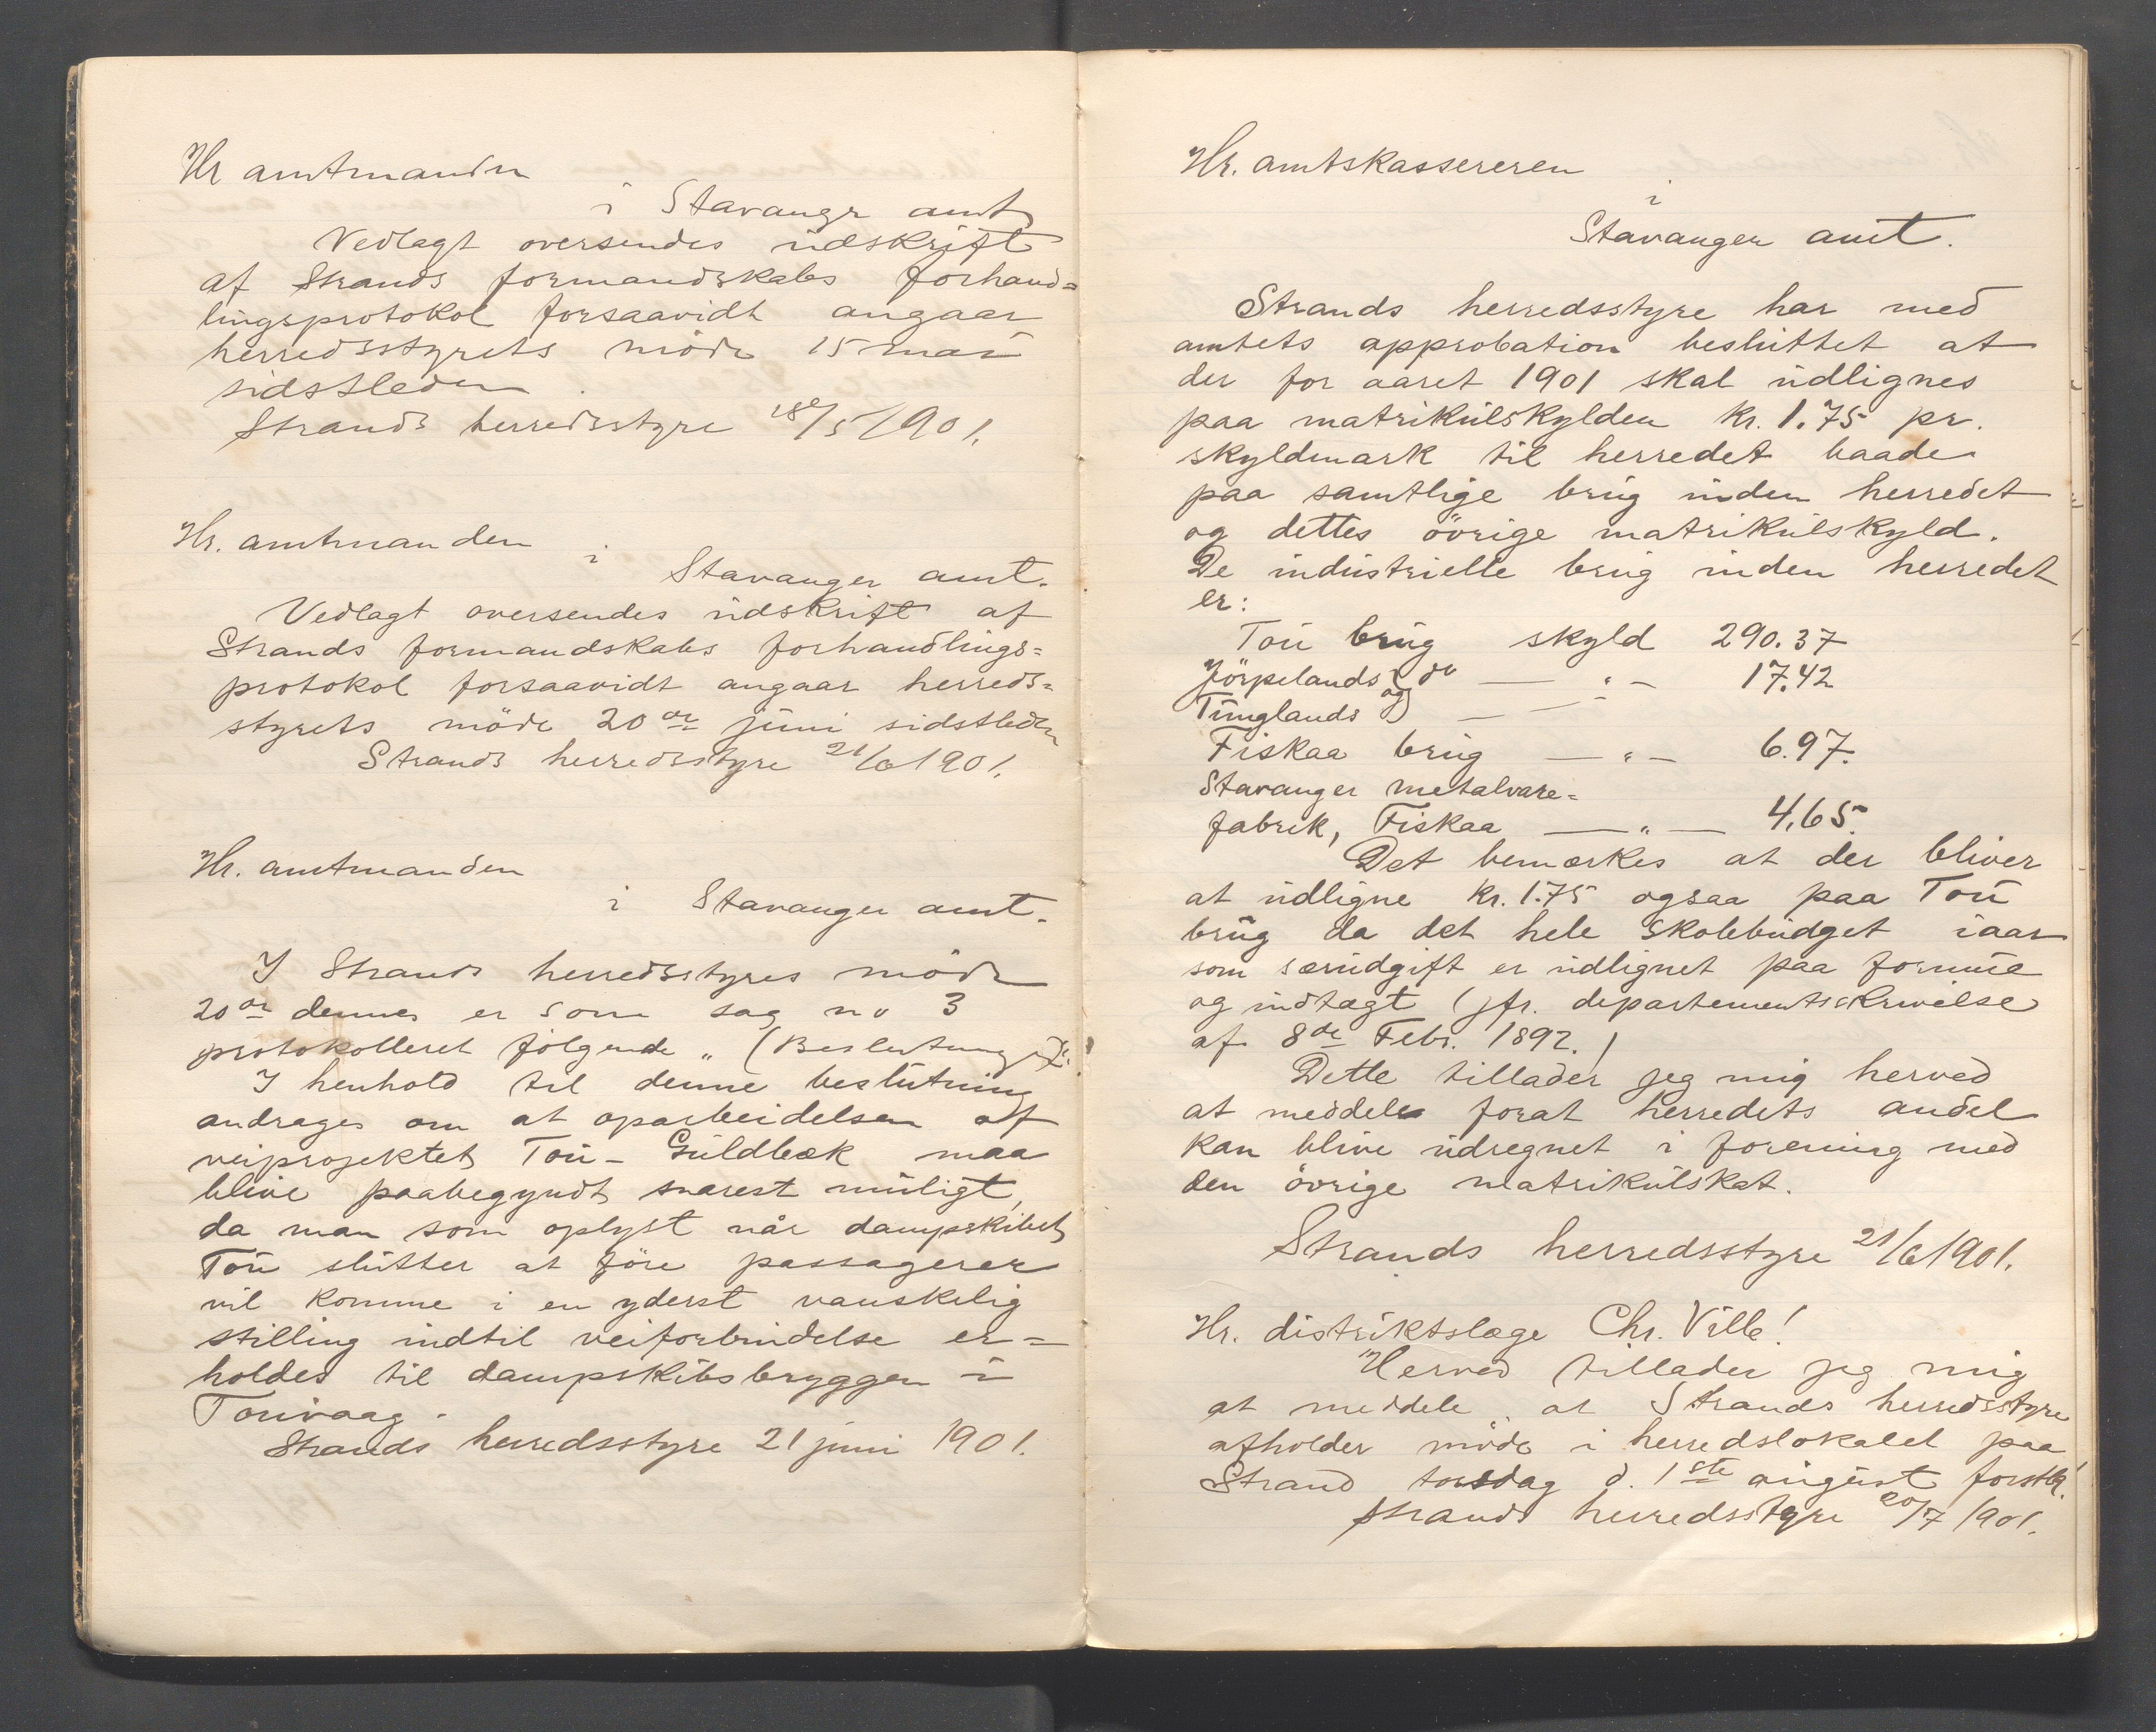 Hr amtmanden
i Stavanger amt
Vedlagt oversendes udskrift
af Strands formandskabs forhand=
lingsprotokol forsaavidt angaar
herredsstyrets möde 15 mai
sidstleden
Strands herredsstyre 18/5 1901.
Hr. amtmanden
i Stavanger amt.
Vedlagt oversendes udskrift af
Strands formandskabs forhandlings=
protokol forsaavidt angaar herreds=
styrets möde 20de juni sidstleden
Strands herredsstyre 21/6 1901.
Hr. amtmanden
i Stavanger amt.
I Strands herredsstyres möde
20de dennes er som sag no 3
protokolleret følgende „ (Beslutning
I henhold til denne beslutning
andrages om at oparbeidelsen af
veiprojektet Tou - Guldbæk maa
blive paabegyndt snarest muligt,
da man som oplyst når dampskibet
Tou slutter at före passagerer
vil komme i en yderst vanskelig
stilling indtil veiforbindelse er=
holdes til dampskibsbryggen i
Touvaag.
Strands herredsstyre 21 juni 1901.
Hr. amtskassereren
i
Stavanger amt.
Strands herredsstyre har med
amtets approbation besluttet at
der for aaret 1901 skal udlignes
paa matrikulskylden kr. 1.75 pr.
skyldmark til herredet baade
paa samtlige brug inden herredet
og dettes övrige matrikulskyld.
De industrielle brug inden herredet
er:
Tou brug skyld 290.37
Jörpelands do — „ — 17.42
og
Tunglands — —
Fiskaa brug — „ — 6.97.
Stavanger metalvare=
fabrik, Fiskaa — „ — 4.65.
Det bemærkes at der bliver
at udligne kr. 1.75 ogsaa paa Tou
brug da det hele skolebudget iaar
som særudgift er udlignet paa formue
og indtægt (jfr. departementsskrivelse
af 8de Febr. 1892.)
Dette tillader jeg mig herved
at meddele forat herredets andel
kan blive udregnet i forening med
den övrige matrikulskat.
Strands herredsstyre 21/6 1901.
Hr. distriktslæge Chr. Ville!
Herved tillader jeg mig
at meddele at Strands herredsstyre
afholder möde i herredslokalet paa
Strand torsdag d. 1ste august førstk.
Strands herredsstyre 20/7 1901.